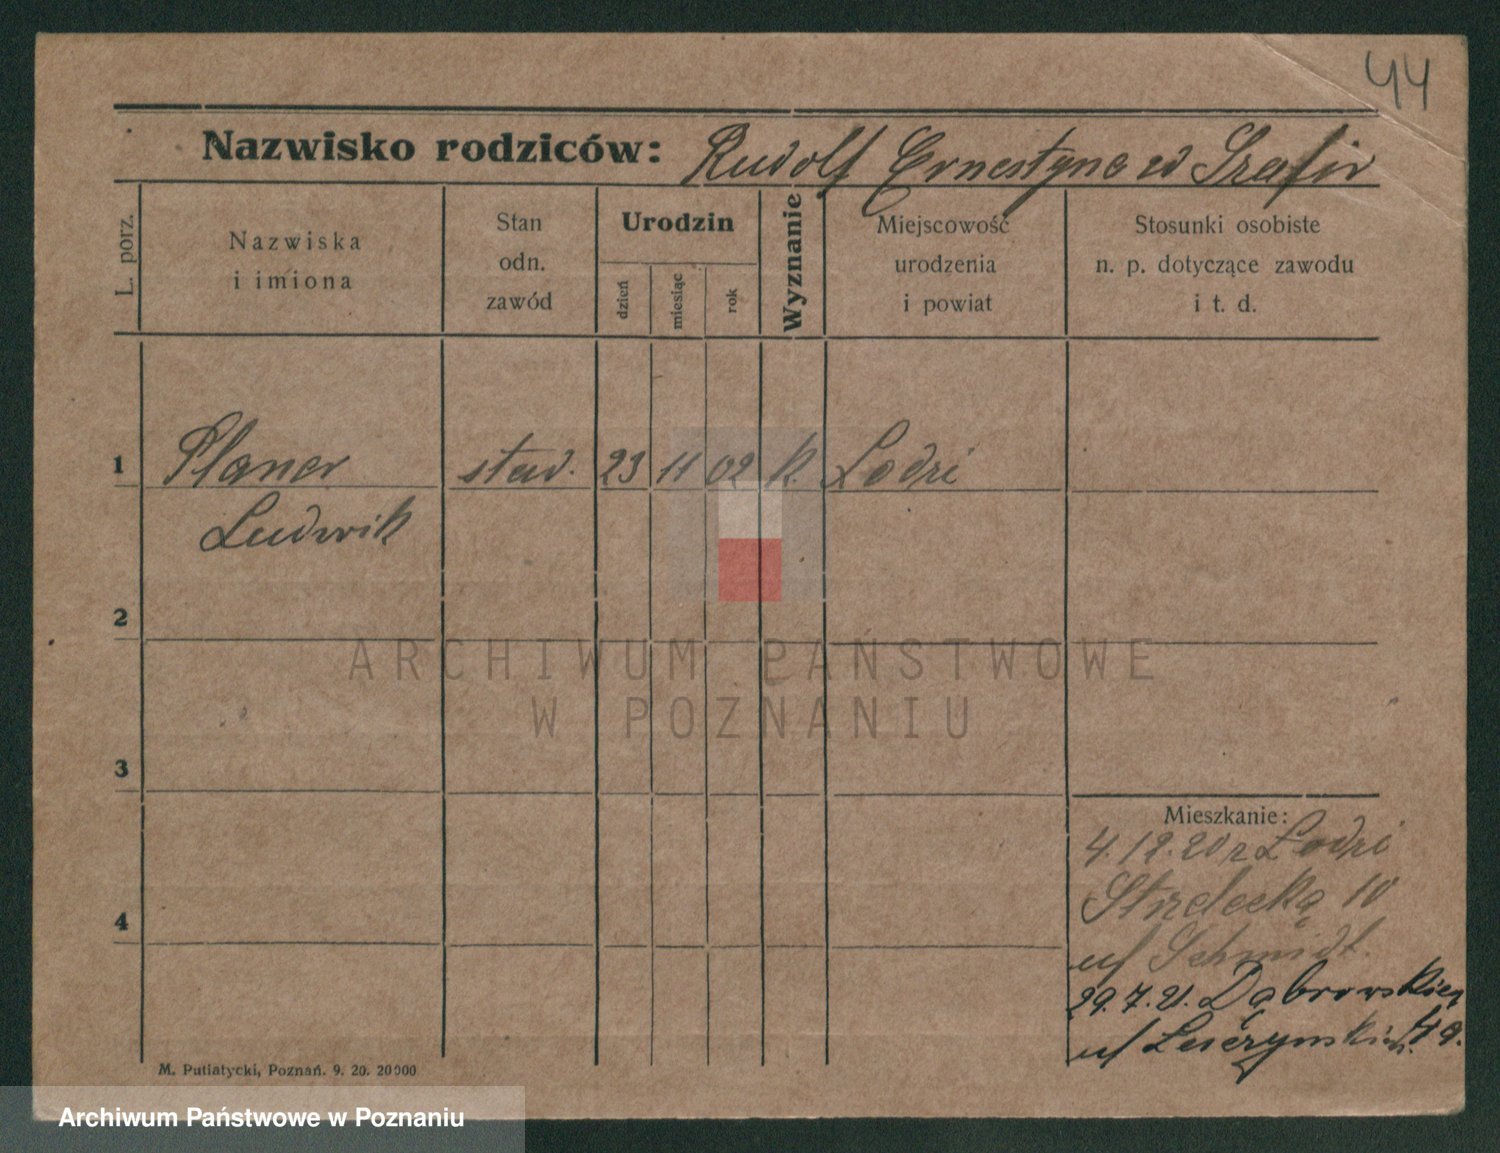 44
Nazwisko rodziców: Rudolf Ernestyna
L. porz.
Nazwiska
i imiona
Stan
odn.
zawód
Urodzin
dzień
miesiąc
rok
Wyznanie
Miejscowość
urodzenia
i powiat
Stosunki osobiste
n. p. dotyczące zawodu
i t. d.
1 Planer 23 11 02 k. Lodzi
Ludwik
2
3
4
Mieszkanie:
4. 12. 20 z Lodzi
Strzelecka 10
u/ Schmidt.
29. 7. 21. Dąbrowskieg
u/
M. Putiatycki, Poznań. 9. 20. 20000
ARCHIWUM PAŃSTWOWE
W POZNANIU
Archiwum Państwowe w Poznaniu